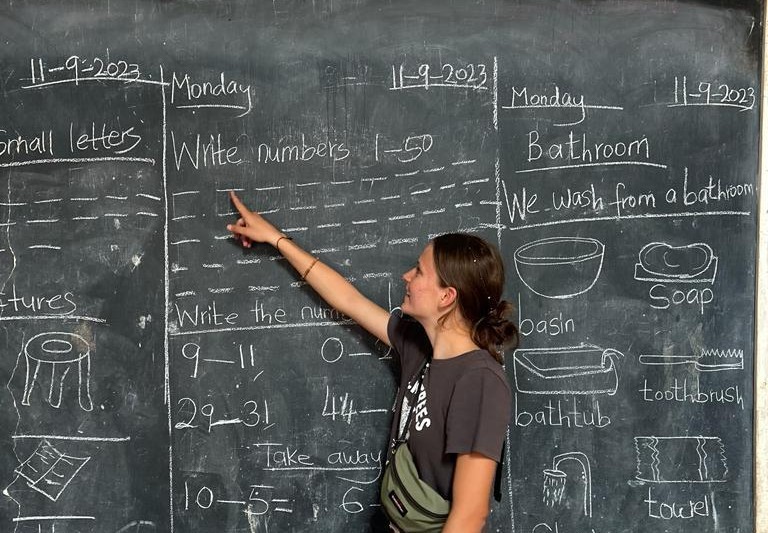 11-9-2023
Small letters
Monday 11-9-2023
Write numbers 1-50
Write the
9-11 0-
29-31 44-
Take away
10-5= 6-
Monday 11-9-2023
Bathroom
We wash from a bathroom
Soap
basin
toothbrush
bathtub
towel